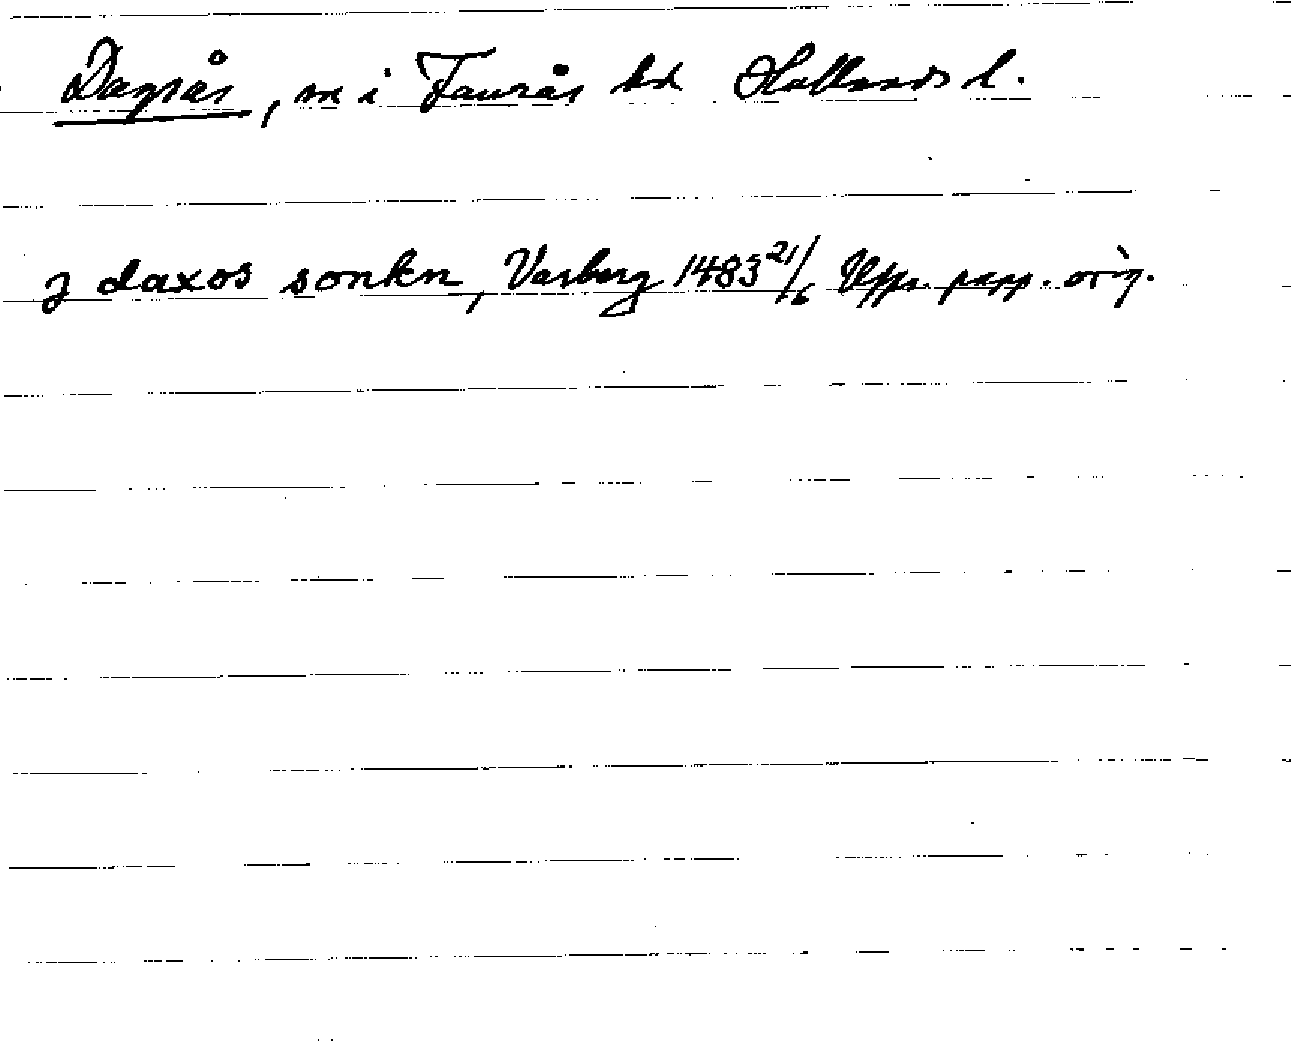 Dagsås, sn i Faurås hd Hallands l.
j daxos sonkn, Varberg 1483 21/6 Upps. papp. orig.